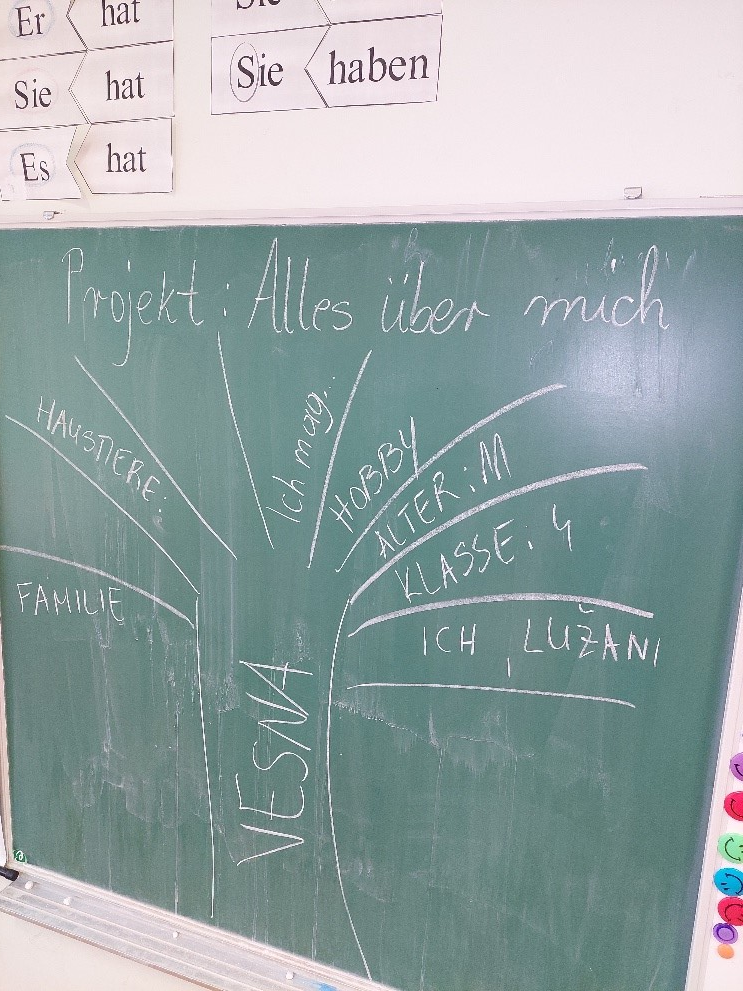 Er hat
Sie hat
Es hat
Sie
Sie haben
Projekt: Alles über mich
HAUSTIERE:
Ich mag...
HOBBY
ALTER: 11
KLASSE: 4
FAMILIE
ICH, LUŽANI
VESNA